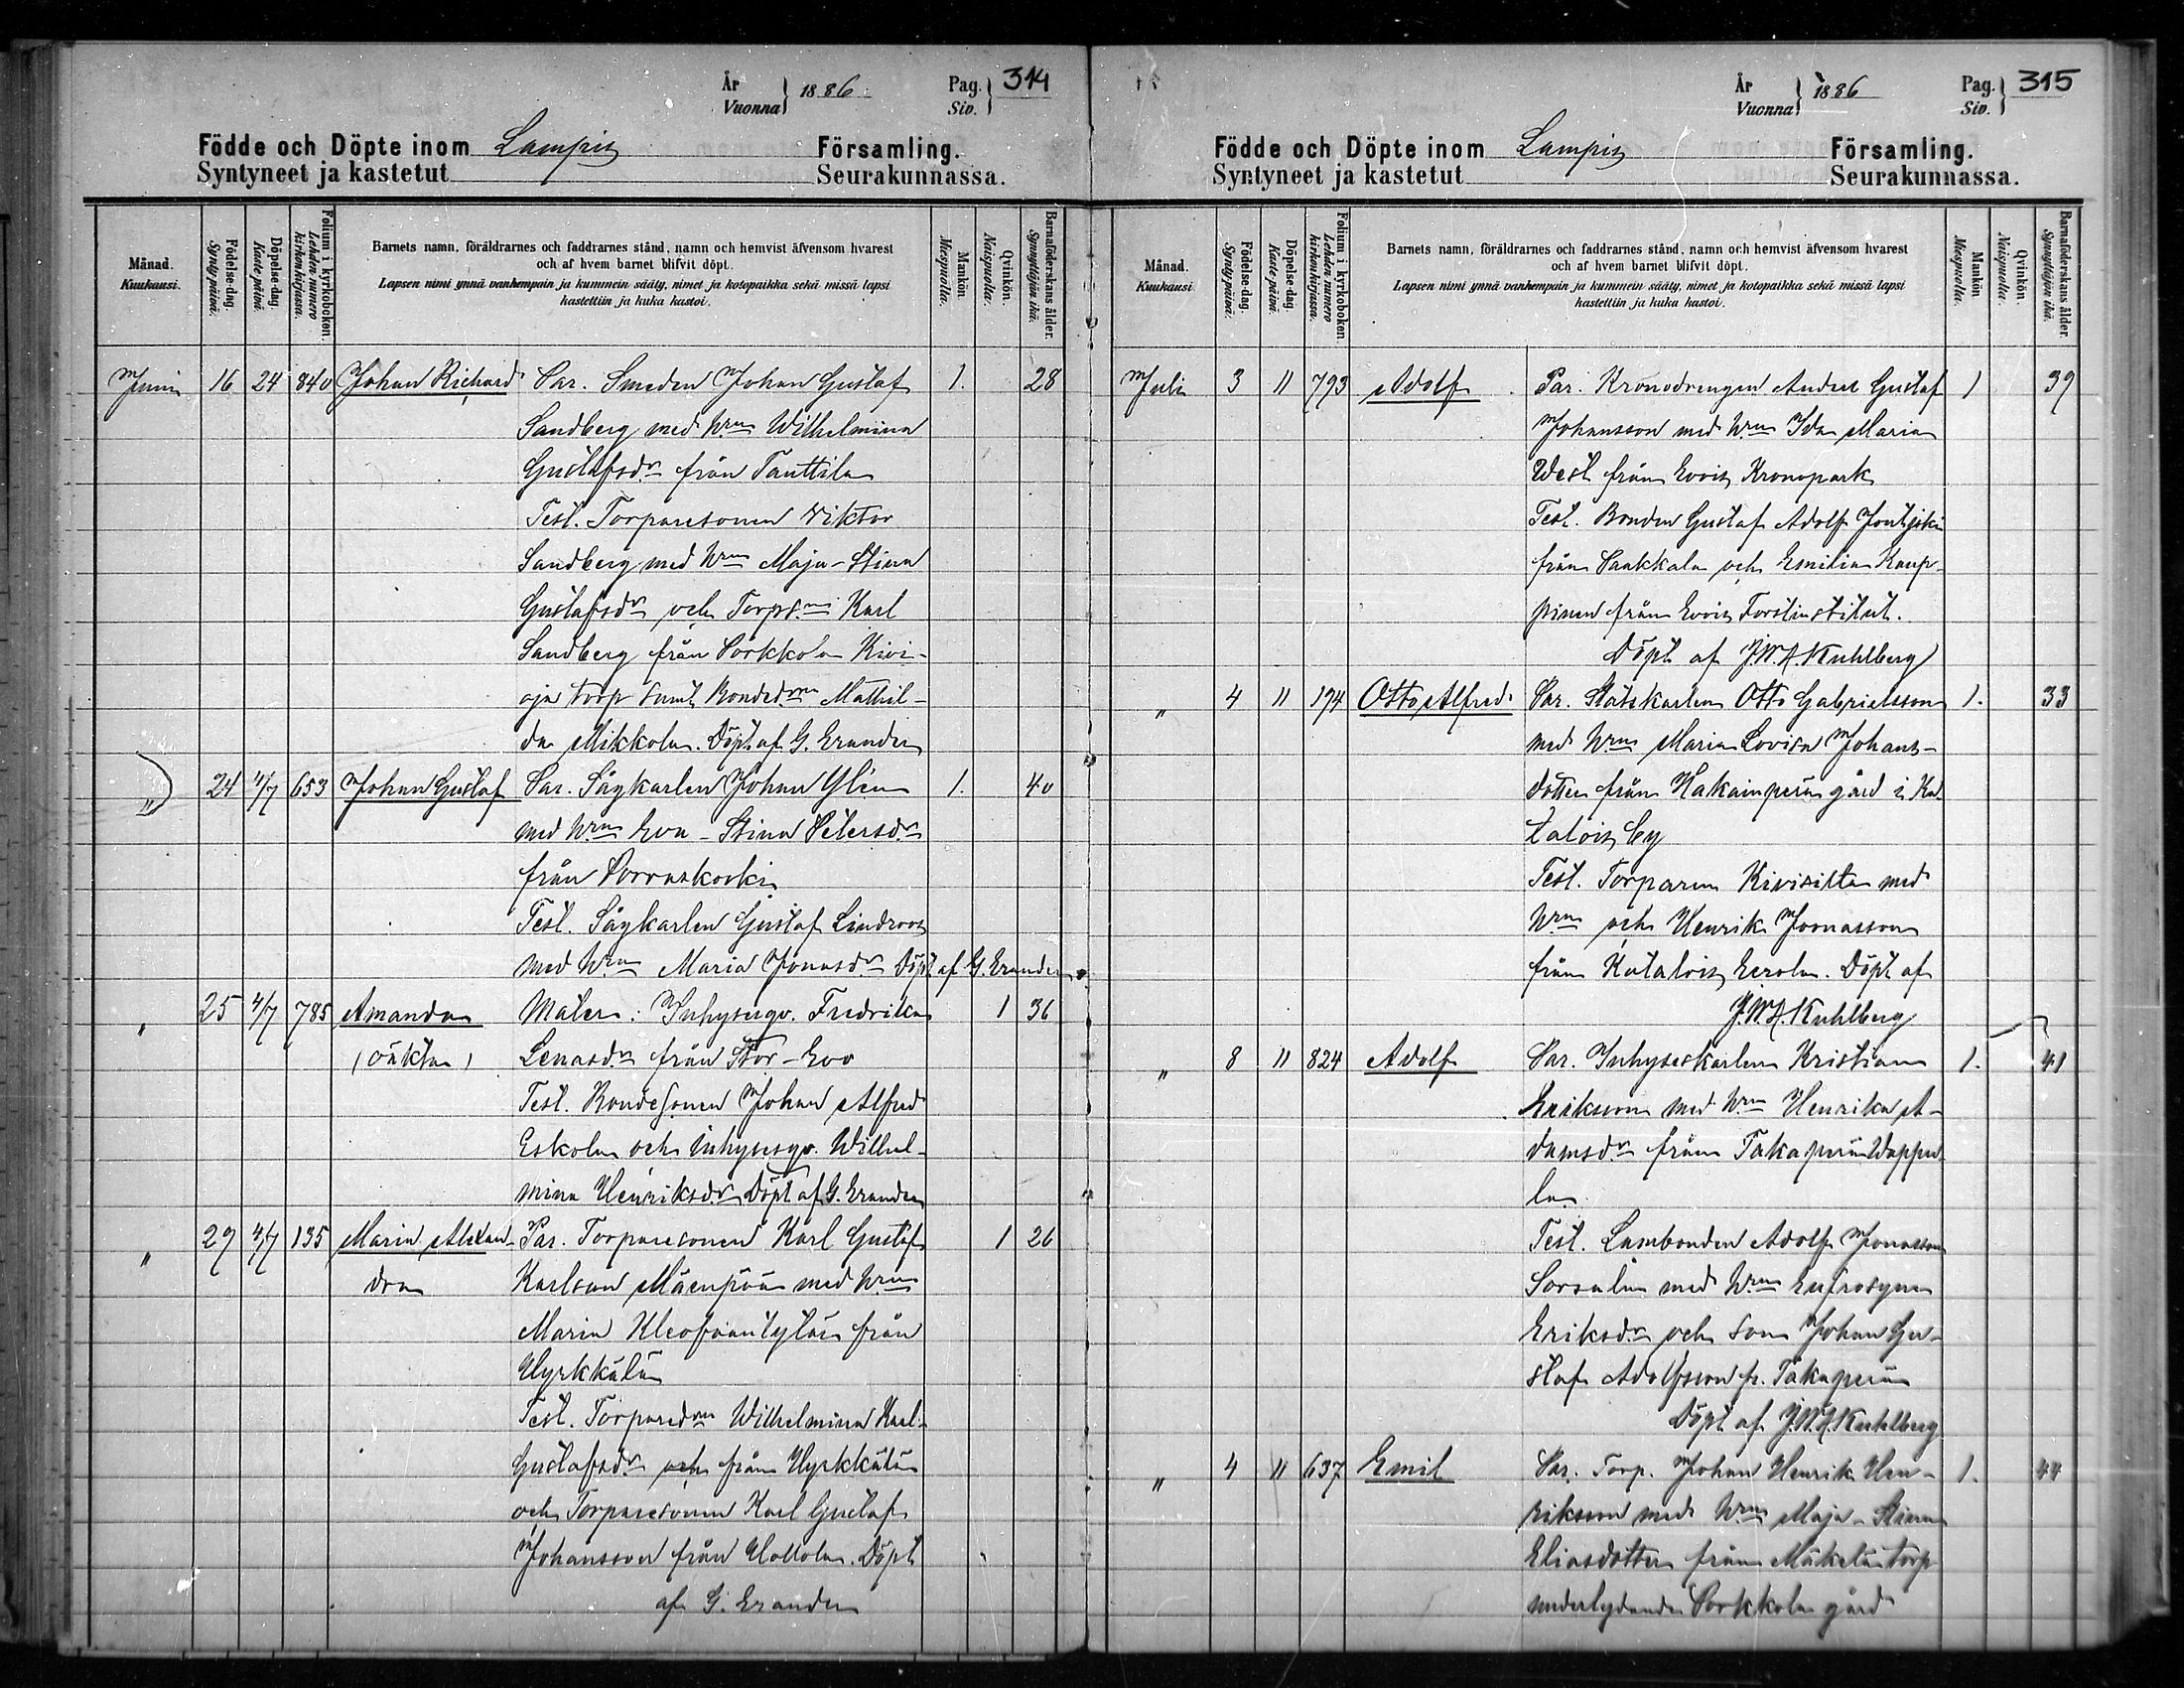 År
Vuonna } 1886 Pag. Siv. } 314
Födde och Döpte inom Lampis Församling.
Syntyneet ja kastetut Seurakunnassa.
Månad. Kuukausi.
Födelse-dag. Synty päivä.
Döpelse-dag. Kaste päivä.
Folium i kyrkoboken. Lehden numero kirkonkirjassa.
Barnets namn, föräldrarnes och faddrarnes stånd, namn och hemvist äfvensom hvarest
och af hvem barnet blifvit döpt.
Lapsen nimi ynnä vanhempain ja kummein sääty, nimet ja kotopaikka sekä missä lapsi
kastettiin ja kuka kastoi.
Mankön. Miespuolta.
Qvinkön. Naispuolta.
Barnaföderskans ålder. Synnyttäjän ikä.
Juni 16 24 840 Johan Richard Par. Smeden Johan Gustaf 1. 28
Sandberg med hrm Wilhelmina
Gustafsdr från Tanttila
Test. Torparesonen Viktor
Sandberg med hrm Maja-Stina
Gustafsdr och Torps.n Karl
Sandberg från Porkkola Kivi-
oja torp samt Bondedrn Mathil-
da Mikkola. Döpt af G. Erander
" 24 4/7 653 Johan Gustaf Par. Sågkarlen Johan Glin 1. 40
med hrm Eva-Stina Petersdr
från Porraskoski
Test. Sågkarlen Gustaf Lindroos
med hrm Maria Jonasdr Döpt af G. Erander
" 25 4/7 785 Amanda Mater: Inhysesqv. Fredrika 1 36
(oäkta) Lenasdr från Stor-Evo
Test. Bondesonen Johan Alfred
Eskola och inhysesqv. Wilhel-
mina Henriksdr Döpt af G. Erander
" 29 4/7 135 Maria Alexan- Par. Torparesonen Karl Gustaf 1 26
dra Karlsson Mäenpää med hrm
Maria Kleofaantytär från
Hyrkkälä
Test. Torparedrn Wilhelmina Karl-
Gustafsdr och från Hyrkkälä
och Torparesonen Karl Gustaf
Johansson från Hollola. Döpt
af G. Erander
År
Vuonna } 1886 Pag. Siv. } 315
Födde och Döpte inom Lampis Församling.
Syntyneet ja kastetut Seurakunnassa.
Månad. Kuukausi.
Födelse-dag. Synty päivä.
Döpelse-dag. Kaste päivä.
Folium i kyrkoboken. Lehden numero kirkonkirjassa.
Barnets namn, föräldrarnes och faddrarnes stånd, namn och hemvist äfvensom hvarest
och af hvem barnet blifvit döpt.
Lapsen nimi ynnä vanhempain ja kummein sääty, nimet ja kotopaikka sekä missä lapsi
kastettiin ja kuka kastoi.
Mankön. Miespuolta.
Qvinkön. Naispuolta.
Barnaföderskans ålder. Synnyttäjän ikä.
Juli 3 11 793 Adolf Par. Kronodrengen Anders Gustaf 1 39
Johansson med hrm Ida Maria
West från Evois Kronopark
Test. Bonden Gustaf Adolf
från Saakkala och Emilia Kaup-
pinen från Evois Forstinstitut.
Döpt af J.W.A. Kuhlberg
" 4 11 194 Otto Alfred Par. Statskarlen Otto Gabrielsson 1. 33
med hrm Maria Lovisa Johans-
dotter från Hakainperä gård i Ka-
talois by
Test. Torparen Kivisilta med
hrm och Henrik Joonasson
från Katalois Eerola. Döpt af
J.W.A. Kuhlberg
" 8 11 824 Adolf Par. Inhyseskarlen Kristian 1. 41
Eriksson med hrm Henrika A-
damsdr från Takaperä Wappu-
la
Test. Lambonden Adolf Jonasson
Sorsala med hrm Eufrosyna
Eriksdr och son Johan Gu-
staf Adolfsson fr. Takaperä
Döpt af J.W.A. Kuhlberg
" 4 11 637 Emil Par. Torp. Johan Henrik Hen- 1. 44
riksson med hrm Maja-Stina
Eliasdotter från Mäkelä torp
underlydande Porkkola gård